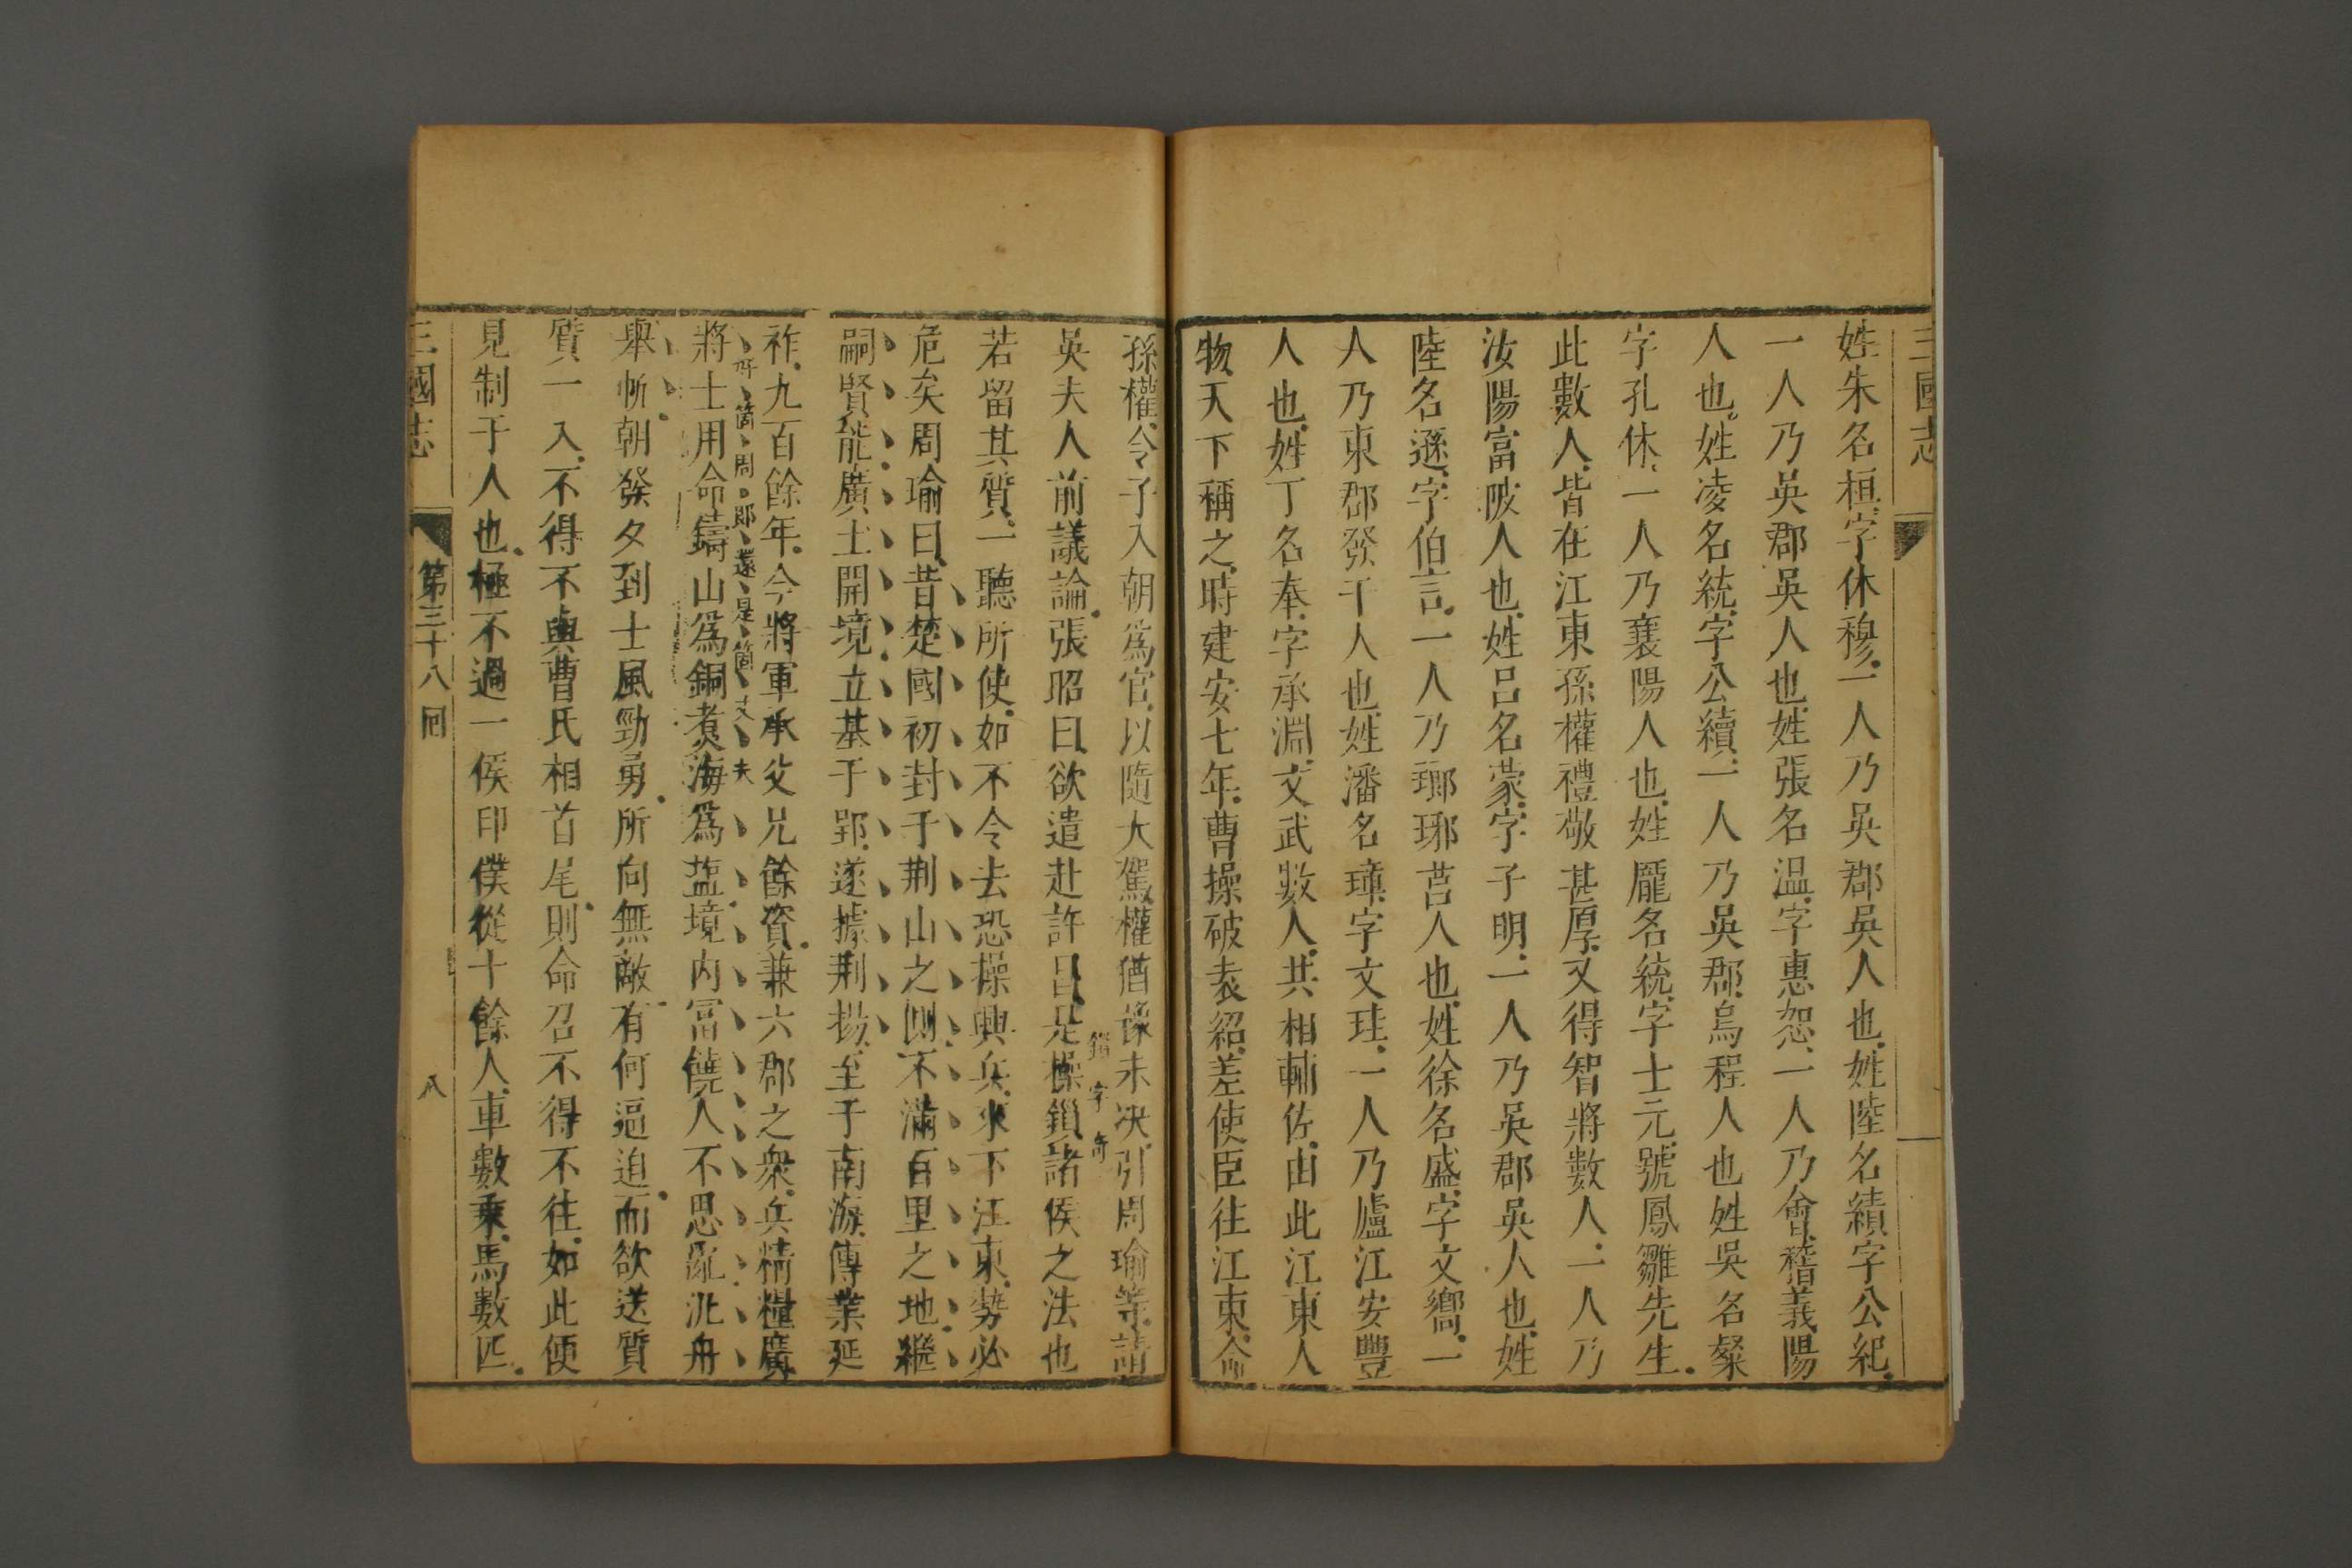 三國志
姓朱名桓字休穆一人乃吳郡吳人也姓陸名績字公紀
一人乃吳郡吳人也姓張名溫字惠恕一人乃會稽義陽
人也姓凌名統字公續一人乃吳郡烏程人也姓吳名粲
字孔休一人乃襄陽人也姓龐名統字士元號鳳雛先生
此數人皆在江東孫權禮敬甚厚又得智將數人一人乃
汝陽富陂人也姓呂名蒙字子明一人乃吳郡吳人也姓
陸名遜字伯言一人乃瑯琊莒人也姓徐名盛字文嚮一
人乃東郡發干人也姓潘名璋字文珪一人乃廬江安豐
人也姓丁名奉字承淵文武數人共相輔佐由此江東人
物天下稱之時建安七年曹操破袁紹差使臣往江東命
孫權令子入朝爲官以隨大駕權猶豫未决引周瑜等請
鎖字奇
吳夫人前議論張昭曰欲遣赴許昌是操鎖諸侯之法也
若留其質一聽所使如不令去恐操興兵來下江東勢必
危矣周瑜曰昔楚國初封于荆山之側不滿百里之地繼
嗣賢能廣土開境立基于郢遂據荆揚至于南海傳業延
祚九百餘年今將軍承父兄餘資兼六郡之衆兵精糧廣
好箇周郎還是箇丈夫
將士用命鑄山爲銅煮海爲塩境内冨饒人不思亂汎舟
舉帆朝發夕到士風勁勇所向無敵有何逼迫而欲送質
質一入不得不與曹氏相首尾則命召不得不往如此便
見制于人也極不過一侯印僕從十餘人車數乘馬數匹
三國志 第三十八囘 八